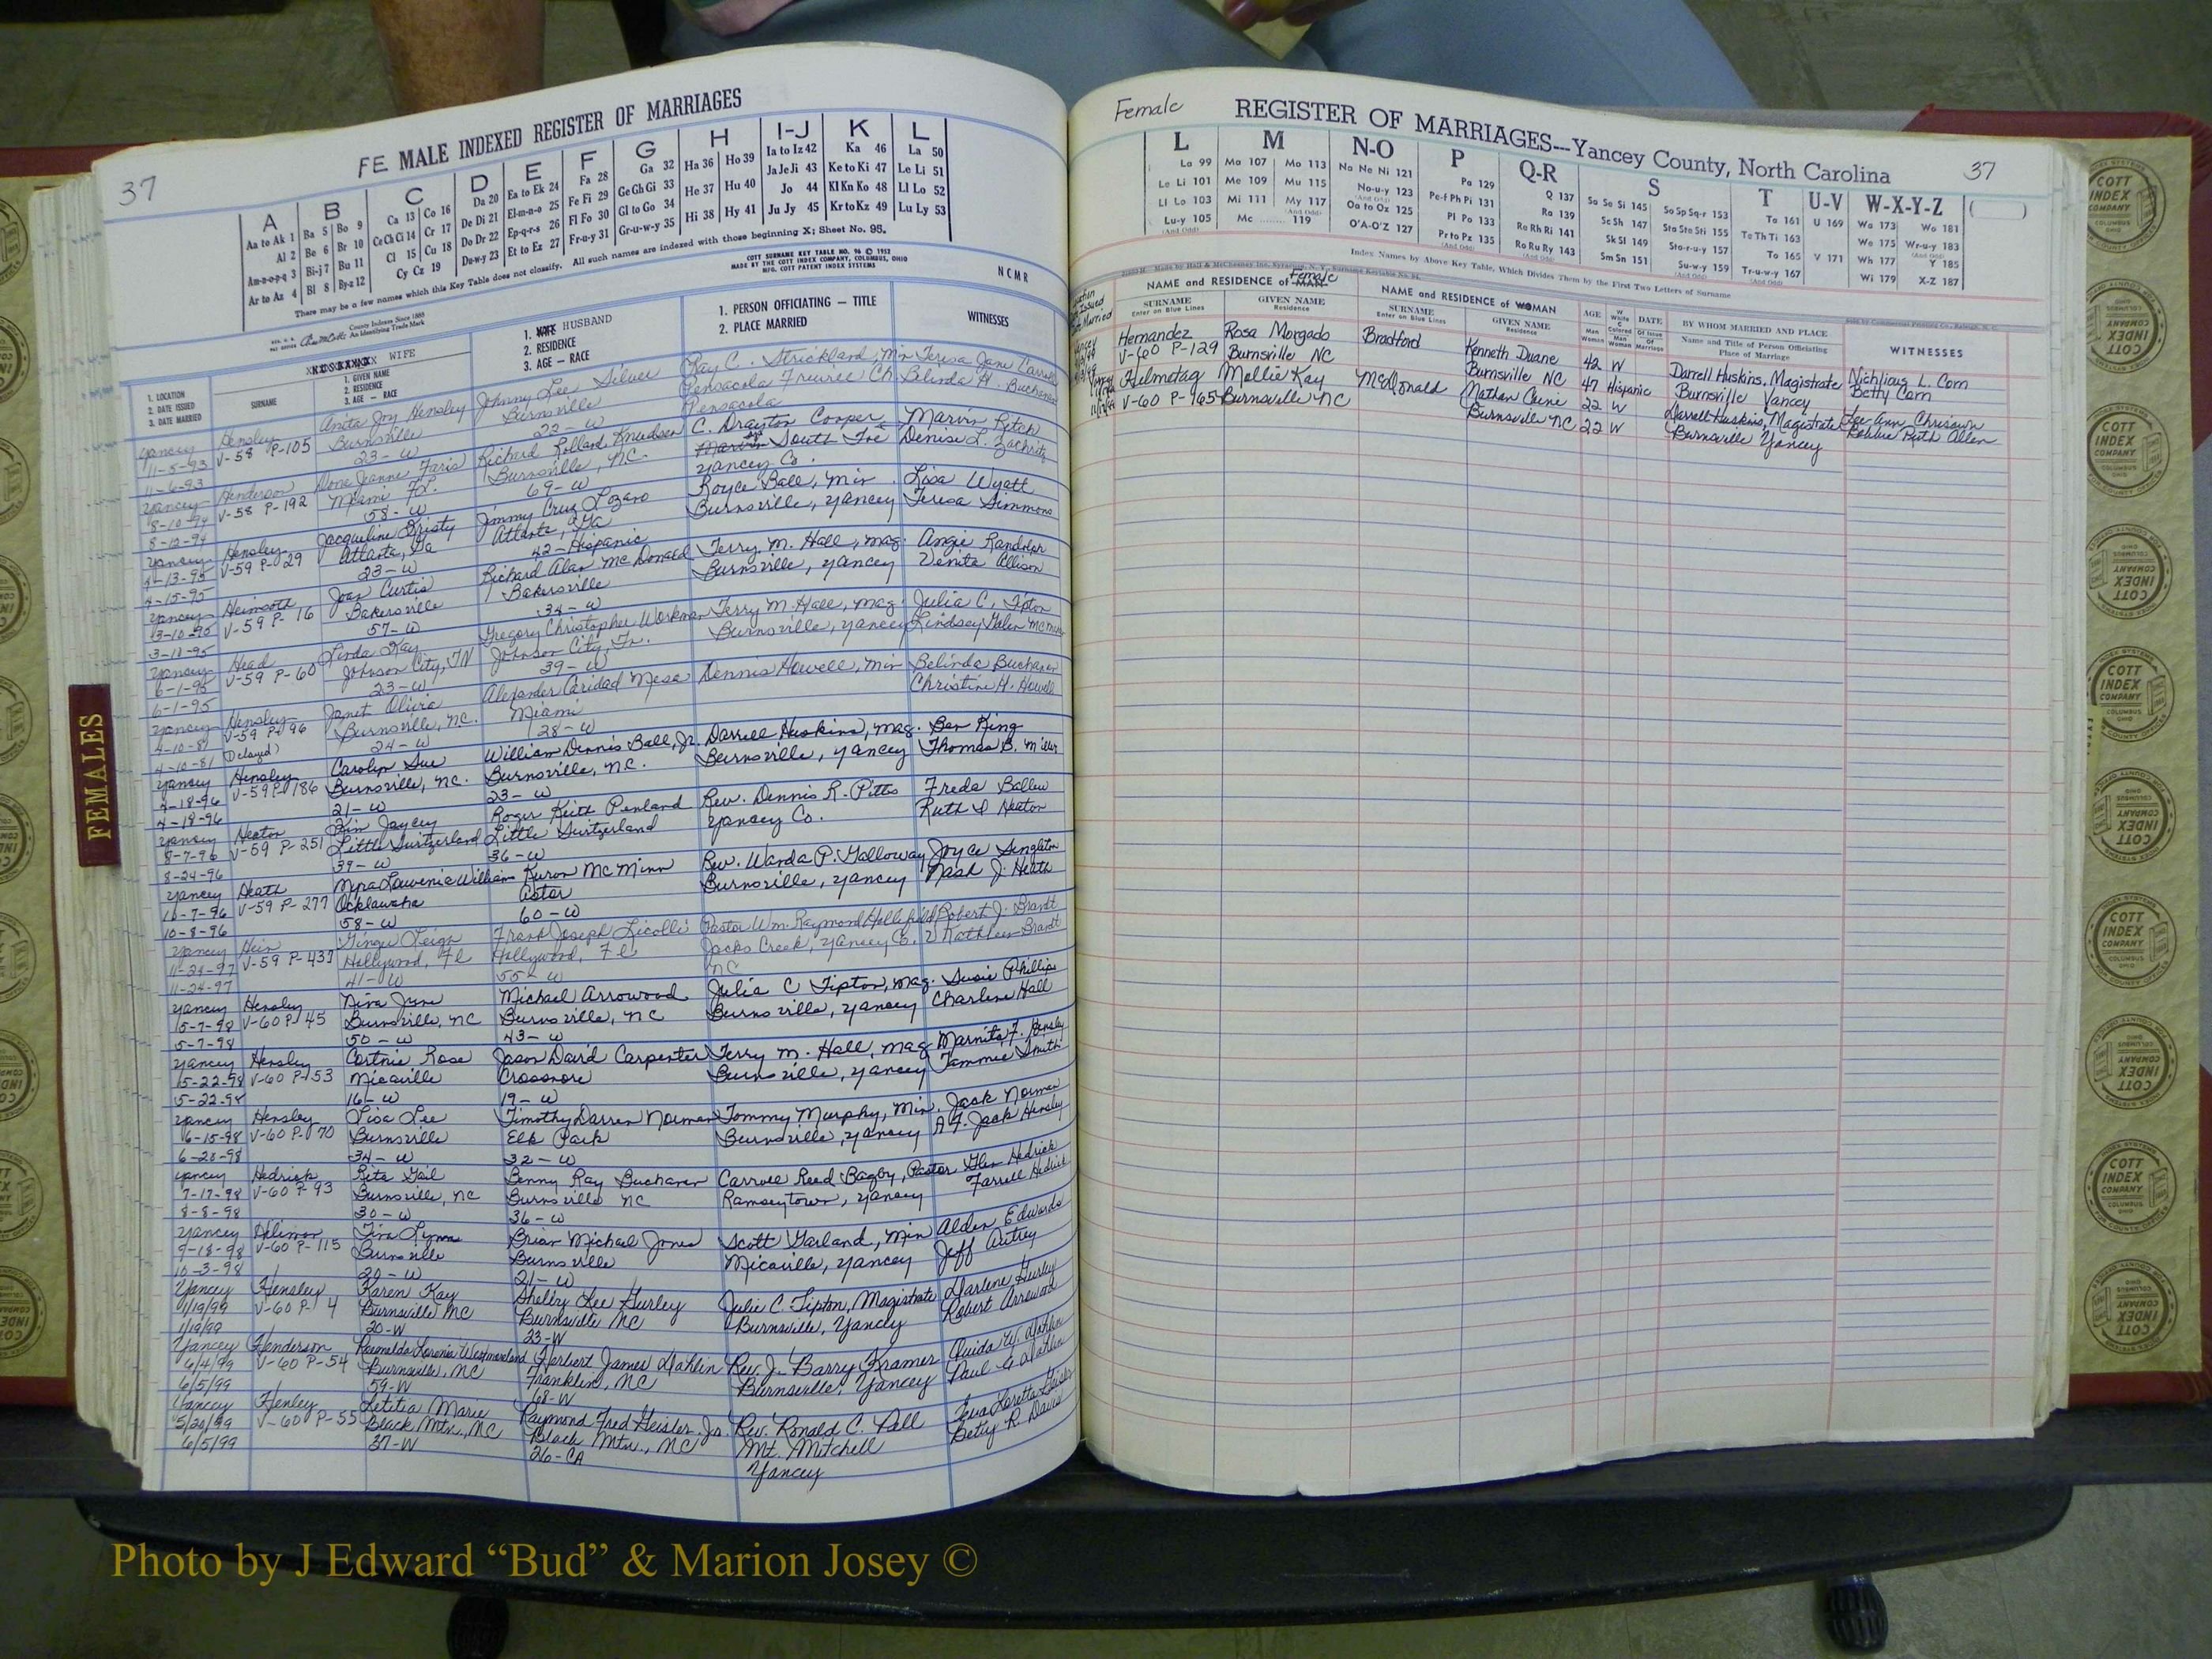 37
FE MALE INDEXED REGISTER OF MARRIAGES
A B C D E F G H I-J K L
Aa to Ak 1 Ba 5 Bo 9 Ca 13 Co 16 Da 20 Ea to Ek 24 Fa 28 Ga 32 Ha 36 Ho 39 Ia to Iz 42 Ka 46 La 50
Al 2 Be 6 Br 10 Ce Ch Ci 14 Cr 17 De Di 21 El-m-n-o 25 Fe Fi 29 Ge Gh Gi 33 He 37 Hu 40 Ja Je Ji 43 Ke to Ki 47 Le Li 51
Am-n-o-p-q 3 Bi-j 7 Bu 11 Cl 15 Cu 18 Do Dr 22 Ep-q-r-s 26 Fl Fo 30 Gl to Go 34 Hi 38 Hy 41 Jo 44 Kl Kn Ko 48 Ll Lo 52
Ar to Az 4 Bl 8 By-z 12 Cy Cz 19 Du-w-y 23 Et to Ez 27 Fr-u-y 31 Gr-u-w-y 35 Ju Jy 45 Kr to Kz 49 Lu Ly 53
There may be a few names which this Key Table does not classify. All such names are indexed with those beginning X; Sheet No. 95.
COTT SURNAME KEY TABLE NO. 96 © 1952
MADE BY THE COTT INDEX COMPANY, COLUMBUS, OHIO
MFG. COTT PATENT INDEX SYSTEMS
NCMR
County Indexes Since 1888
An Identifying Trade Mark
1. LOCATION
2. DATE ISSUED
3. DATE MARRIED
SURNAME
WIFE
1. GIVEN NAME
2. RESIDENCE
3. AGE — RACE
1. WIFE HUSBAND
2. RESIDENCE
3. AGE — RACE
1. PERSON OFFICIATING — TITLE
2. PLACE MARRIED
WITNESSES
Yancey Hensley Anita Joy Hensley Johnny Lee Silver Ray C. Strickland, Min Teresa Jane Carroll
11-5-93 V-58 P-105 Burnsville Burnsville Pensacola Freewill Ch Belinda H. Buchanan
11-6-93 23-W 22-W Pensacola
Yancey Henderson Jeanne Faris Richard Rollard Knudsen C. Drayton Cooper Marvin Ritch
8-10-94 V-58 P-192 Miami FL. Burnsville, N.C. South Toe Denise L. Zachritz
8-12-94 58-W 69-W Yancey Co.
Yancey Hensley Jacqueline Kristy Jimmy Cruz Lozaro Royce Ball, Min. Lisa Wyatt
4-13-95 V-59 P-29 Atlanta, Ga Atlanta, Ga Burnsville, Yancey Teresa Simmons
4-15-95 23-W 42-Hispanic
Yancey Heimsoth Joan Curtis Richard Alan McDonald Terry M. Hall, Mag. Angie Randolph
3-10-95 V-59 P-16 Bakersville Bakersville Burnsville, Yancey Venita Allison
3-18-95 57-W 34-W
Yancey Head Linda Kay Gregory Christopher Workman Terry M. Hall, Mag. Julia C. Tipton
6-1-95 V-59 P-60 Johnson City, TN Johnson City, Tn. Burnsville, Yancey Lindsey
6-1-95 23-W 39-W
Yancey Hensley Janet Olivia Alexander Caridad Mesa Dennis Howell, Min Belinda Buchanan
4-10-81 V-59 P-96 Burnsville, NC. Miami Christine H. Howell
4-10-81 (Delayed) 24-W 28-W
Yancey Hensley Carolyn Sue William Dennis Ball, Jr. Darrell Huskins, Mag. Ben King
4-18-96 V-59 P-186 Burnsville, NC. Burnsville, N.C. Burnsville, Yancey Thomas B. Miller
4-18-96 21-W 23-W
Yancey Heaton Jaycey Roger Keith Penland Rev. Dennis R. Pitts Freda Ballew
8-7-96 V-59 P-251 Little Switzerland Little Switzerland Yancey Co. Ruth L Heaton
8-24-96 39-W 36-W
Yancey Heath Myra Louvenia William Kuron McMinn Rev. Wanda P. Galloway Joyce Singleton
10-7-96 V-59 P-277 Ocklawaha Astor Burnsville, Yancey Nash J. Heath
10-8-96 58-W 60-W
Yancey Hein Ginger Leigh Frank Joseph Licolli Pastor Wm. Raymond Hollifield Robert J. Brandt
11-24-97 V-59 P-437 Hollywood, Fl Hollywood, Fl Jacks Creek, Yancey Co. Kathleen Brandt
11-24-97 41-W 55-W NC
Yancey Hensley Nina June Michael Arrowood Julia C Tipton, Mag. Susie Phillips
5-7-98 V-60 P-45 Burnsville, NC Burnsville, NC Burnsville, Yancey Charlene Hall
5-7-98 50-W 43-W
Yancey Hensley Cortnie Rose Jason David Carpenter Terry M. Hall, Mag Marnita F. Hensley
5-22-98 V-60 P-53 Micaville Crossnore Burnsville, Yancey Tammie Smith
5-22-98 16-W 19-W
Yancey Hensley Lisa Lee Timothy Darren Norman Tommy Murphy, Min. Jack Norman
6-15-98 V-60 P-70 Burnsville Elk Park Burnsville, Yancey A.F. Jack Hensley
6-20-98 34-W 32-W
Yancey Hedrick Rita Gail Benny Ray Buchanan Carroll Reed Bagby, Pastor Glen Hedrick
7-17-98 V-60 P-93 Burnsville, NC Burnsville NC Ramseytown, Yancey Farrell Hedrick
8-8-98 30-W 36-W
Yancey Tina Lynn Brian Michael Jones Scott Garland, Min Alden Edwards
9-18-98 V-60 P-115 Burnsville Burnsville Micaville, Yancey Jeff Autrey
10-3-98 20-W 21-W
Yancey Hensley Karen Kay Shelby Lee Gurley Julie C. Tipton, Magistrate Darlene Gurley
1/19/99 V-60 P-4 Burnsville NC Burnsville NC Burnsville, Yancey Robert Arrowood
1/19/99 20-W 23-W
Yancey Henderson Westmoreland Herbert James Dahlin Rev. J. Barry Kramer Ouida W. Dahlin
6/4/99 V-60 P-54 Burnsville, NC Franklin, NC Burnsville, Yancey Paul G Dahlin
6/5/99 59-W 68-W
Yancey Henley Letitia Marie Raymond Fred Geisler Jr. Rev. Ronald C. Pall Leva Loretta Geisler
5/20/99 V-60 P-55 Black Mtn., NC Black Mtn., NC Mt. Mitchell Betty R. Davis
6/5/99 37-W 26-CA Yancey
FEMALES
Female
REGISTER OF MARRIAGES---Yancey County, North Carolina
37
L M N-O P Q-R S T U-V W-X-Y-Z
La 99 Ma 107 Mo 113 Na Ne Ni 121 Pa 129 Q 137 Sa Se Si 145 So Sp Sq-r 153 Ta 161 U 169 Wa 173 Wo 181
Le Li 101 Me 109 Mu 115 No-u-y 123 Pe-f Ph Pi 131 Ra 139 Sc Sh 147 Sta Ste Sti 155 Te Th Ti 163 V 171 We 175 Wr-u-y 183
Ll Lo 103 Mi 111 My 117 Oa to Oz 125 Pl Po 133 Re Rh Ri 141 Sk Sl 149 Sto-r-u-y 157 To 165 Wh 177 Y 185
Lu-y 105 Mc 119 O'A-O'Z 127 Pr to Pz 135 Ro Ru Ry 143 Sm Sn 151 Su-w-y 159 Tr-u-w-y 167 Wi 179 X-Z 187
Index Names by Above Key Table, Which Divides Them by the First Two Letters of Surname
NAME and RESIDENCE of MAN Female
SURNAME
Enter on Blue Lines
GIVEN NAME
Residence
NAME and RESIDENCE of WOMAN
SURNAME
Enter on Blue Lines
GIVEN NAME
Residence
AGE
Man
Woman
W White
C Colored
Man
Woman
DATE
Of Issue
Of Marriage
BY WHOM MARRIED AND PLACE
Name and Title of Person Officiating
Place of Marriage
WITNESSES
Hernandez Rosa Morgado Bradford Kenneth Duane 42 W Darrell Huskins, Magistrate Nichlious L. Corn
V-60 P-129 Burnsville NC Burnsville NC 47 Hispanic Burnsville Yancey Betty Corn
Helmetag Mollie Kay McDonald Nathan 22 W Darrell Huskins, Magistrate Lee Ann Chrisawn
V-60 P-165 Burnsville NC Burnsville NC 22 W Burnsville Yancey Bobbie Ruth Allen
COTT
INDEX
COMPANY
COLUMBUS
OHIO
Photo by J Edward “Bud” & Marion Josey ©